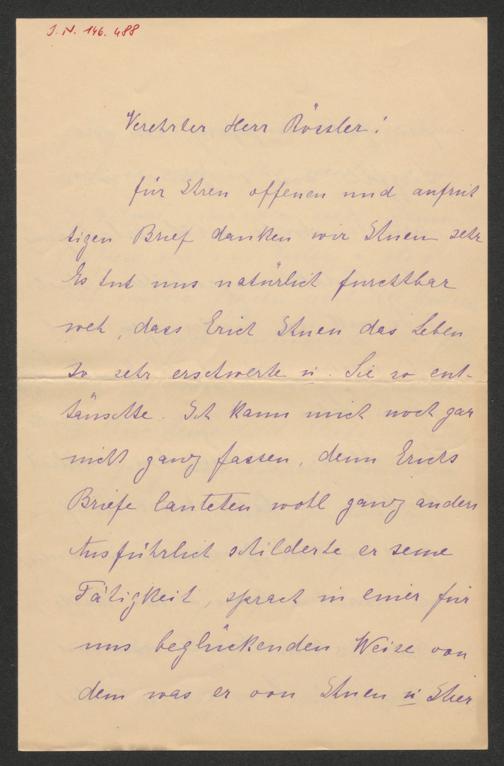 J.N. 146.488
Verehrter Herr Rössler!
für Ihren offenen und aufrich
tigen Brief danken wir Ihnen sehr
Es tut uns natürlich furchtbar
weh, dass Erich Ihnen das Leben
so sehr erschwerte u. Sie so ent-
täuschte. Ich kann mich noch gar
nicht ganz fassen, denn Erichs
Briefe lauteten wohl ganz anders
Ausführlich schilderte er seine
Tätigkeit, sprach in einer für
uns beglückenden Weise von
dem was er von Ihnen u Ihrer